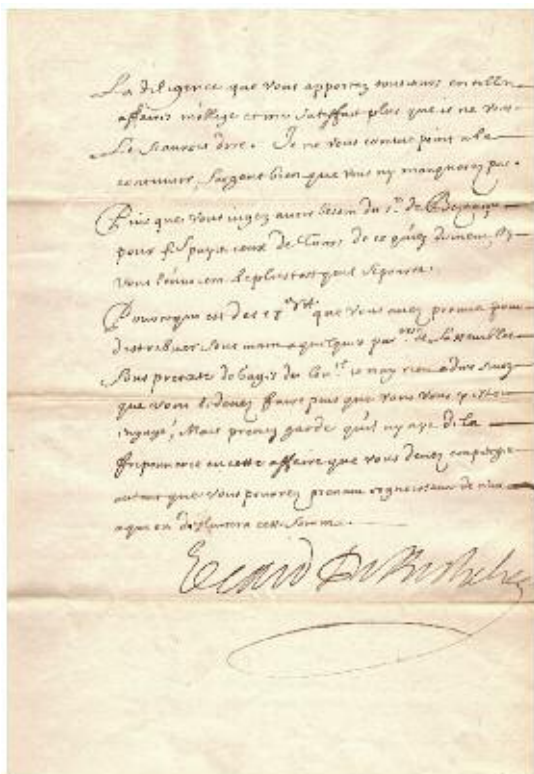 La diligence que vous apportez tousiours en telles
affaires m'oblige et me satisfait plus que ie ne vous
le scaurois dire. Je ne vous convie point a la
continuer, sachant bien que vous ny manquerez pas.
Puis que vous iugez avoir besoin du sr. de
pour ceux de de ce
vous l'enuoiera le plustost quil se pourra.
Pour ce qui est des que vous auez promis pour
distribuer sous main a quelques par de l'assemblee
sous pretexte de ie nay rien a dire sinon
que vous le deuez faire puis que vous vous y estes
engagé, Mais prenez garde quil ny aye de la
friponnerie en cette affaire que vous deuez
autant que vous pourrez prenant cognoissance de ceux
a qui on distribuera cette somme.
Le Card De Richelieu